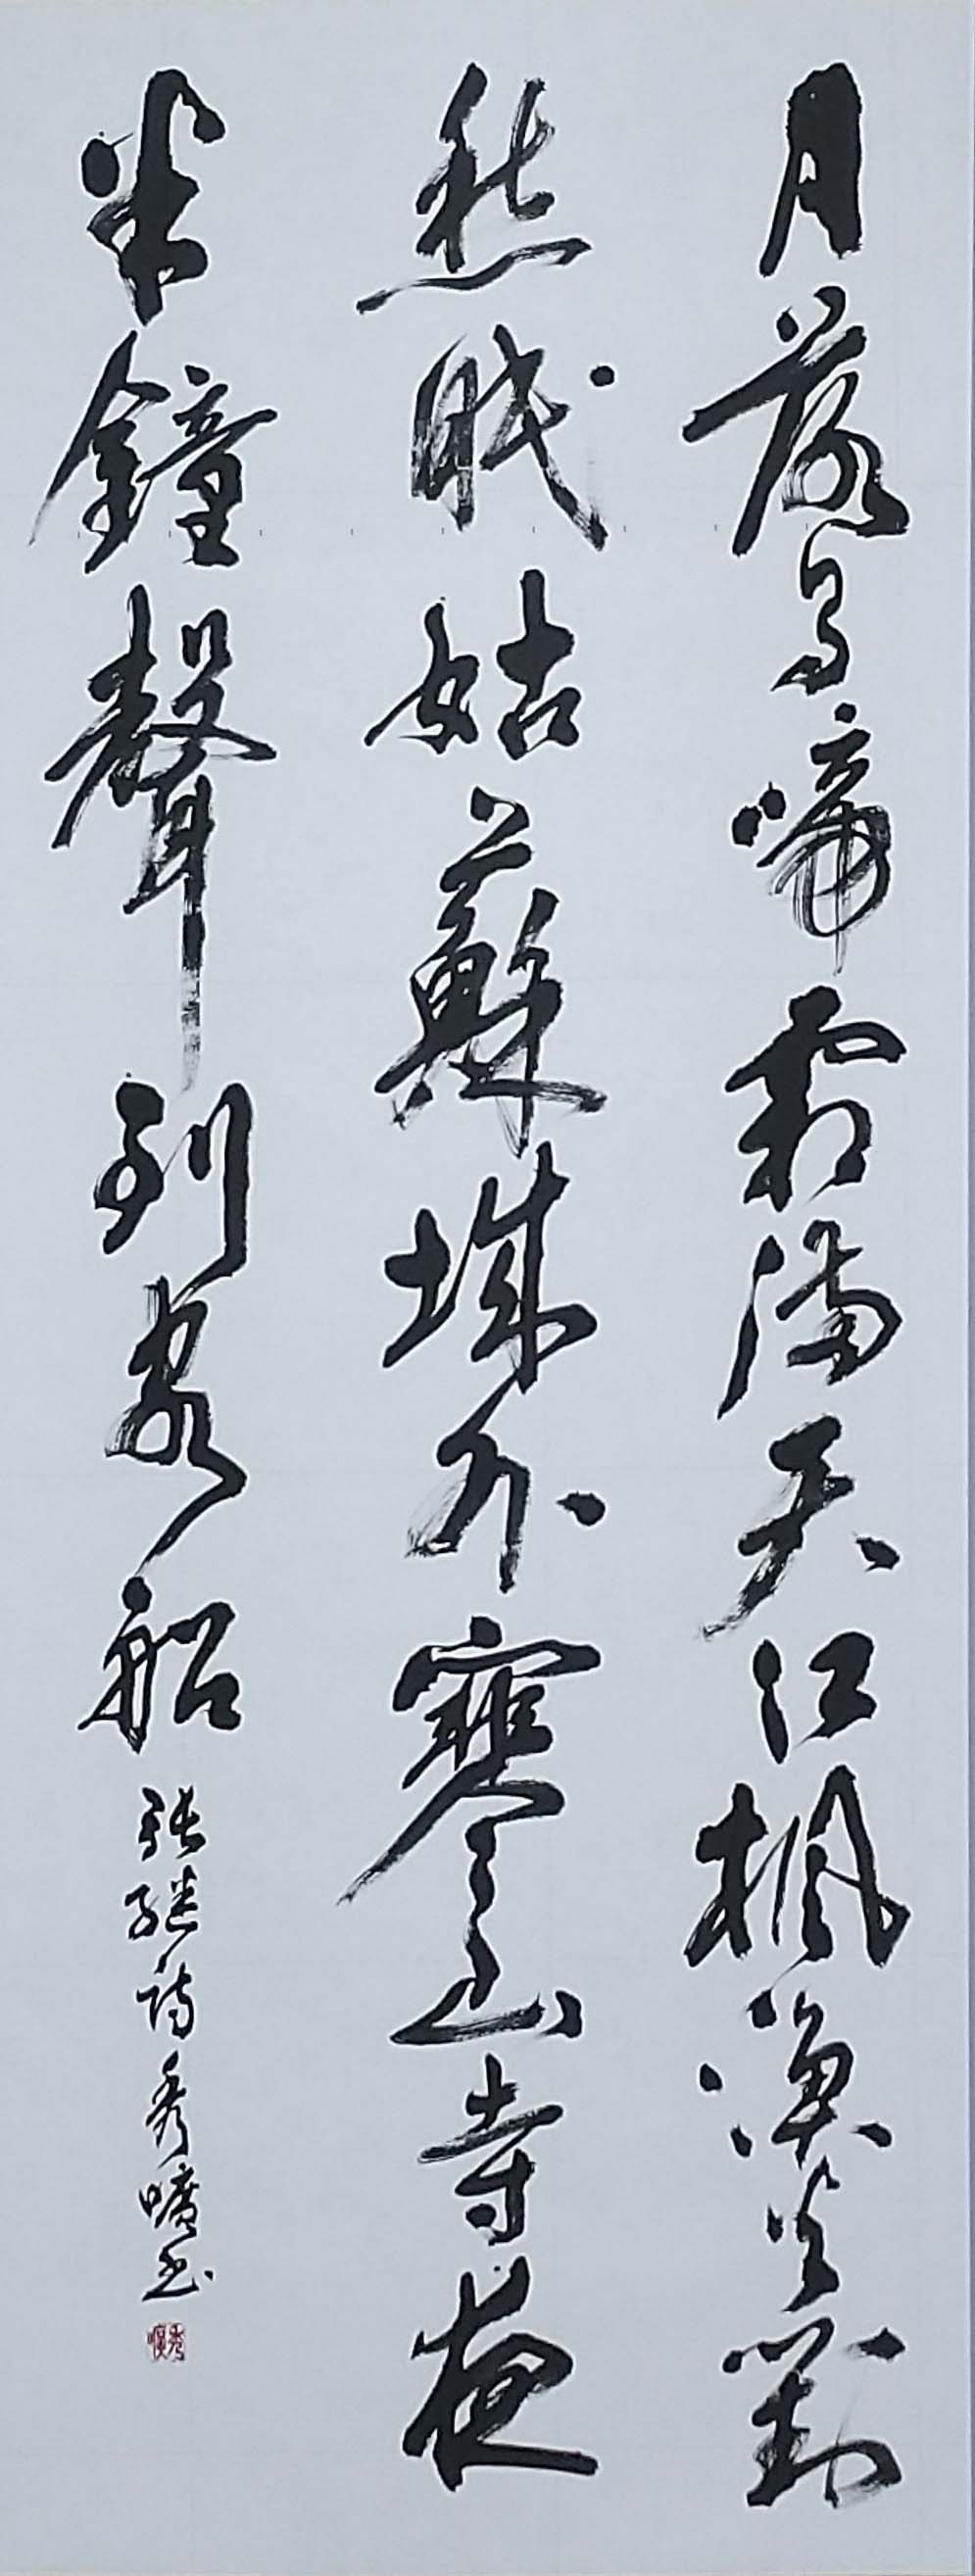 月落烏啼霜滿天江楓漁火對
愁眠姑蘇城外寒山寺夜
半鐘聲到客船
張継詩秀曠書
秀曠